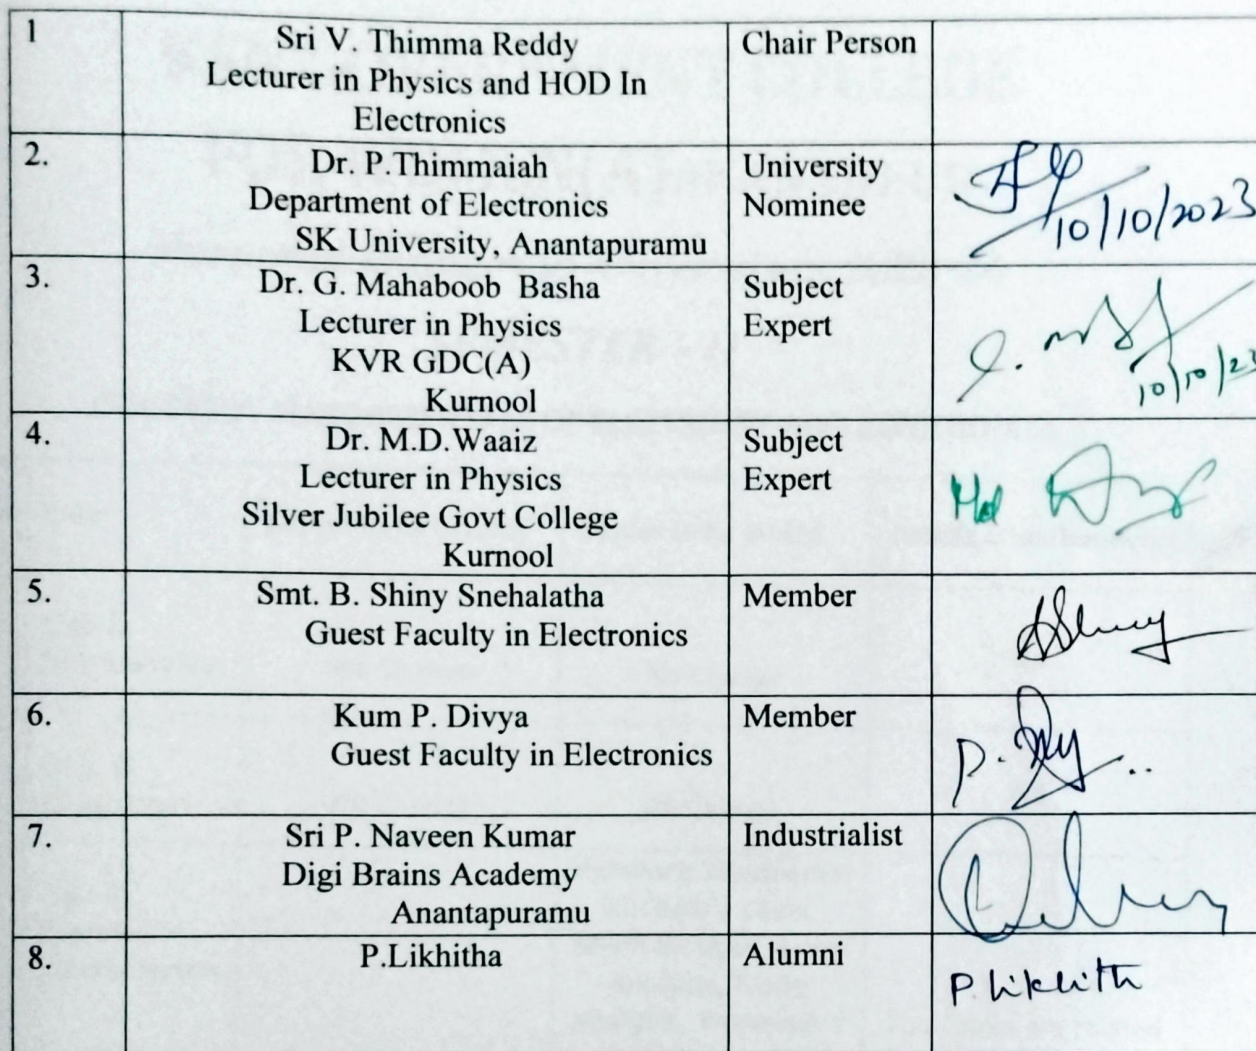 1
Sri V. Thimma Reddy
Lecturer in Physics and HOD In
Electronics
Chair Person
2.
Dr. P.Thimmaiah
Department of Electronics
SK University, Anantapuramu
University
Nominee
10/10/2023
3.
Dr. G. Mahaboob Basha
Lecturer in Physics
KVR GDC(A)
Kurnool
Subject
Expert
10/10/23
4.
Dr. M.D.Waaiz
Lecturer in Physics
Silver Jubilee Govt College
Kurnool
Subject
Expert
5.
Smt. B. Shiny Snehalatha
Guest Faculty in Electronics
Member
6.
Kum P. Divya
Guest Faculty in Electronics
Member
7.
Sri P. Naveen Kumar
Digi Brains Academy
Anantapuramu
Industrialist
8.
P.Likhitha
Alumni
P. Likhith